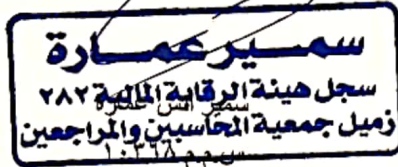 سمير عمارة
سجل هيئة الرقابة المالية ٢٨٢
سمير انس عمارة
زميل جمعية المحاسبين والمراجعين